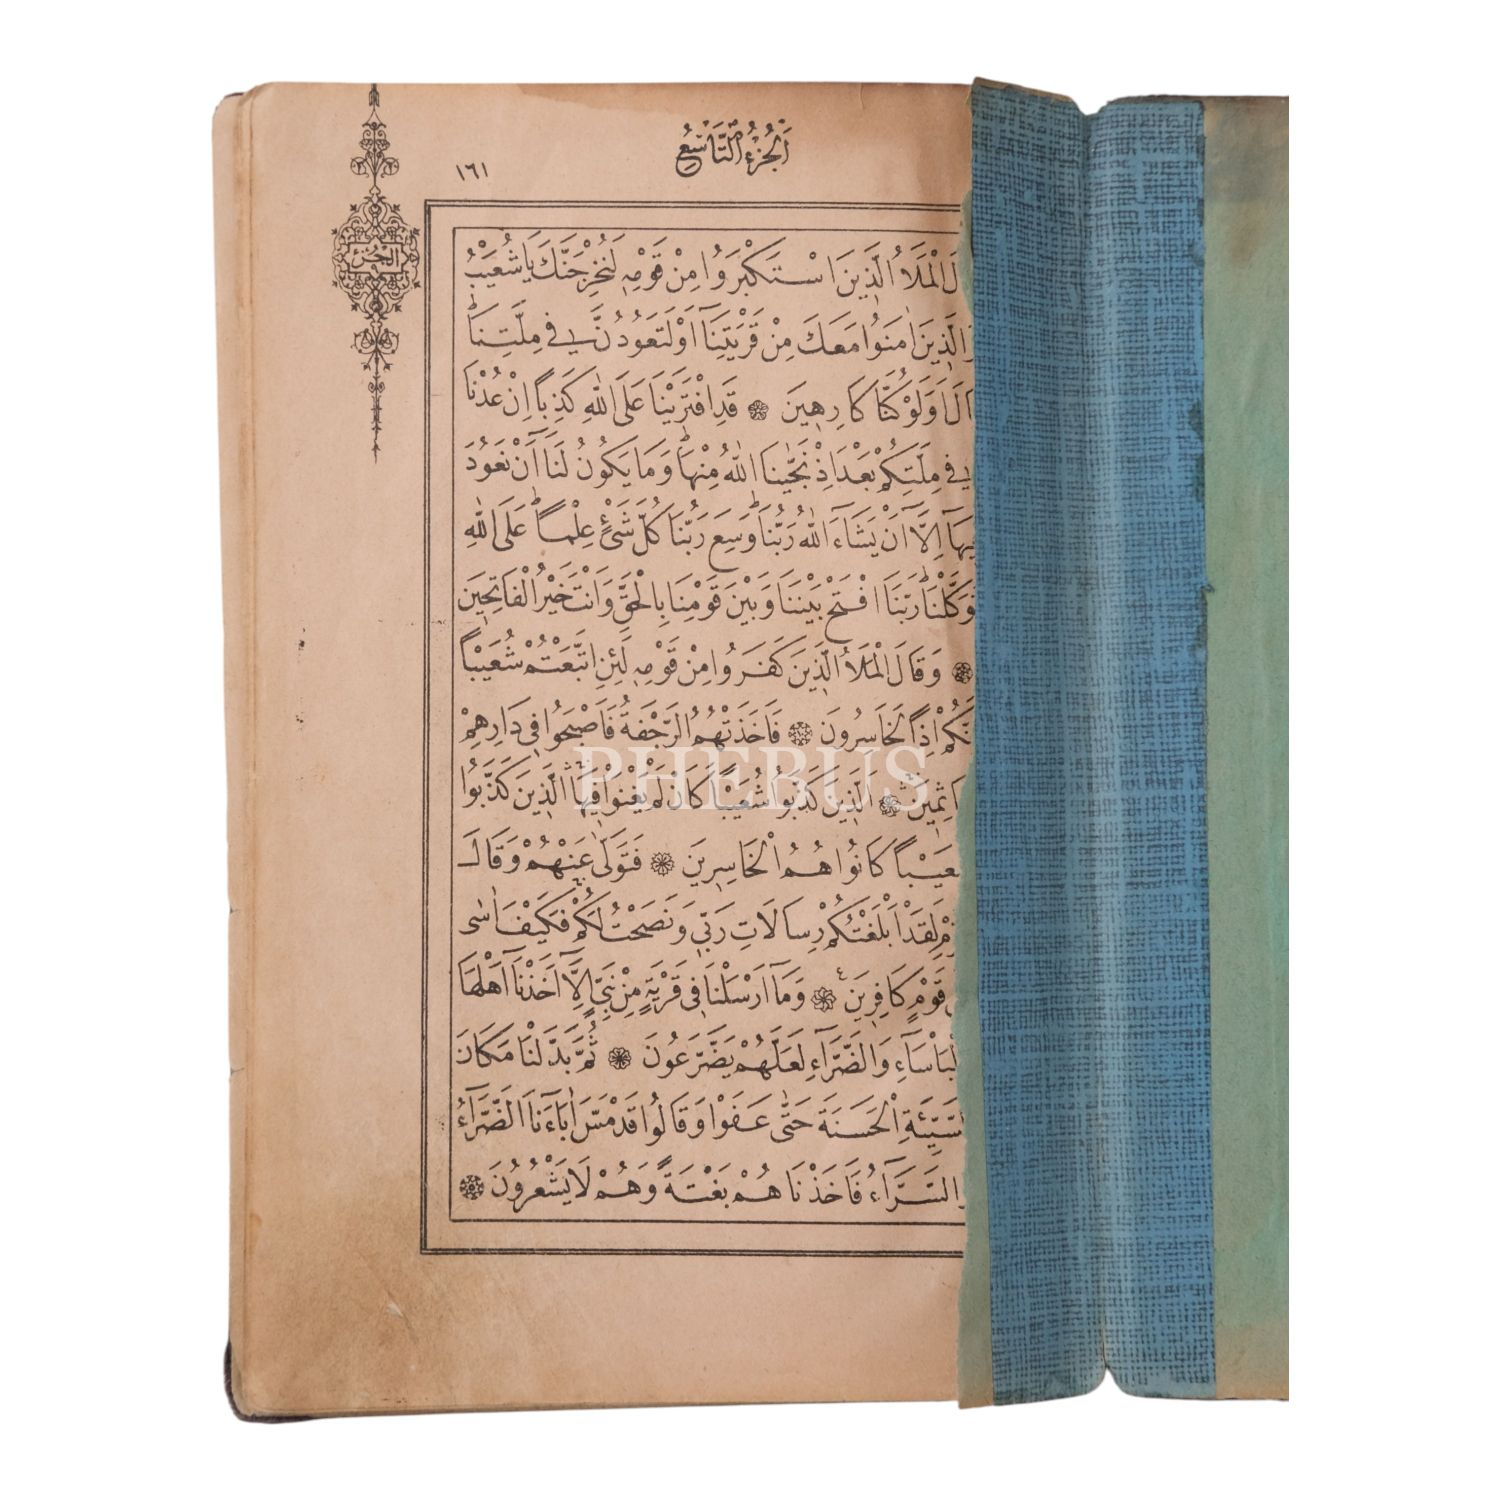 اَلْجُزْءُ التَّاسِعُ
١٦١
الجزء
الْمَلَاُ الَّذينَ اسْتَكْبَرُوا مِنْ قَوْمِهِ لَنُخْرِجَنَّكَ يَا شُعَيْبُ
الَّذينَ اٰمَنُوا مَعَكَ مِنْ قَرْيَتِنَٓا اَوْ لَتَعُودُنَّ في مِلَّتِنَاۜ
اَوَلَوْ كُنَّا كَارِهينَ ❁ قَدِ افْتَرَيْنَا عَلَى اللّٰهِ كَذِبًا اِنْ عُدْنَا
في مِلَّتِكُمْ بَعْدَ اِذْ نَجّٰينَا اللّٰهُ مِنْهَاۜ وَمَا يَكُونُ لَنَٓا اَنْ نَعُودَ
اِلَّٓا اَنْ يَشَٓاءَ اللّٰهُ رَبُّنَاۜ وَسِعَ رَبُّنَا كُلَّ شَيْءٍ عِلْمًاۜ عَلَى اللّٰهِ
تَوَكَّلْنَاۜ رَبَّنَا افْتَحْ بَيْنَنَا وَبَيْنَ قَوْمِنَا بِالْحَقِّ وَاَنْتَ خَيْرُ الْفَاتِحينَ
❁ وَقَالَ الْمَلَاُ الَّذينَ كَفَرُوا مِنْ قَوْمِهِ لَئِنِ اتَّبَعْتُمْ شُعَيْبًا
اِذًا لَخَاسِرُونَ ❁ فَاَخَذَتْهُمُ الرَّجْفَةُ فَاَصْبَحُوا في دَارِهِمْ
❁ اَلَّذينَ كَذَّبُوا شُعَيْبًا كَاَنْ لَمْ يَغْنَوْا فيهَاۛ اَلَّذينَ كَذَّبُوا
كَانُوا هُمُ الْخَاسِرينَ ❁ فَتَوَلّٰى عَنْهُمْ وَقَالَ
لَقَدْ اَبْلَغْتُكُمْ رِسَالَاتِ رَبّي وَنَصَحْتُ لَكُمْ فَكَيْفَ اٰسٰى
قَوْمٍ كَافِرينَ ❁ وَمَٓا اَرْسَلْنَا في قَرْيَةٍ مِنْ نَبِيٍّ اِلَّٓا اَخَذْنَٓا اَهْلَهَا
وَالضَّرَّٓاءِ لَعَلَّهُمْ يَضَّرَّعُونَ ❁ ثُمَّ بَدَّلْنَا مَكَانَ
السَّيِّئَةِ الْحَسَنَةَ حَتّٰى عَفَوْا وَقَالُوا قَدْ مَسَّ اٰبَٓاءَنَا الضَّرَّٓاءُ
السَّرَّٓاءُ فَاَخَذْنَاهُمْ بَغْتَةً وَهُمْ لَا يَشْعُرُونَ ❁
PHEBUS